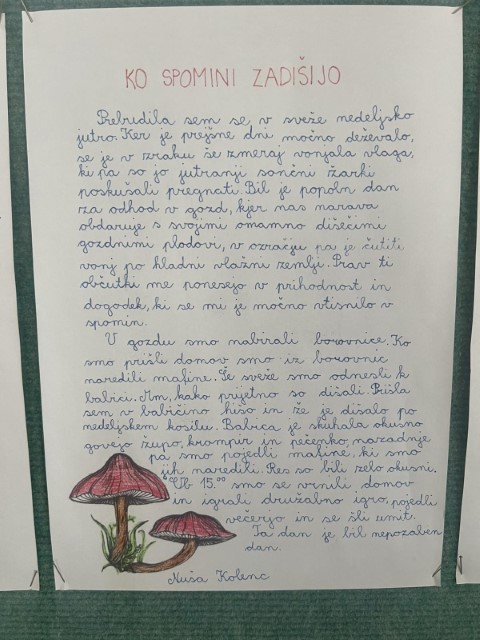 KO SPOMINI ZADIŠIJO
Prebudila sem se v sveže nedeljsko
jutro. Ker je prejšne dni močno deževalo,
se je v zraku še zmeraj vonjala vlaga,
ki pa so jo jutranji sončni žarki
poskušali pregnati. Bil je popoln dan
za odhod v gozd, kjer nas narava
obdaruje s svojimi omamno dišečimi
gozdnimi plodovi, v ozračju pa je čutiti
vonj po hladni vlažni zemlji. Prav ti
občutki me ponesejo v prihodnost in
dogodek, ki se mi je močno vtisnilo v
spomin.
U gozdu smo nabirali borovnice. Ko
smo prišli domov smo iz borovnic
naredili mafine. Še sveže smo odnesli k
babici. Mm, kako prijetno so dišali. Prišla
sem v babičino hišo in že je dišalo po
nedeljskem kosilu. Babica je skuhala okusno
govejo župo, krompir in pečenko, nazadnje
pa smo pojedli mafine, ki smo
jih naredili. Res so bili zelo okusni.
Ob 15.00 smo se vrnili domov
in igrali družabno igro, pojedli
večerjo in se šli umit.
Ta dan je bil nepozaben
dan.
Nuša Kolenc